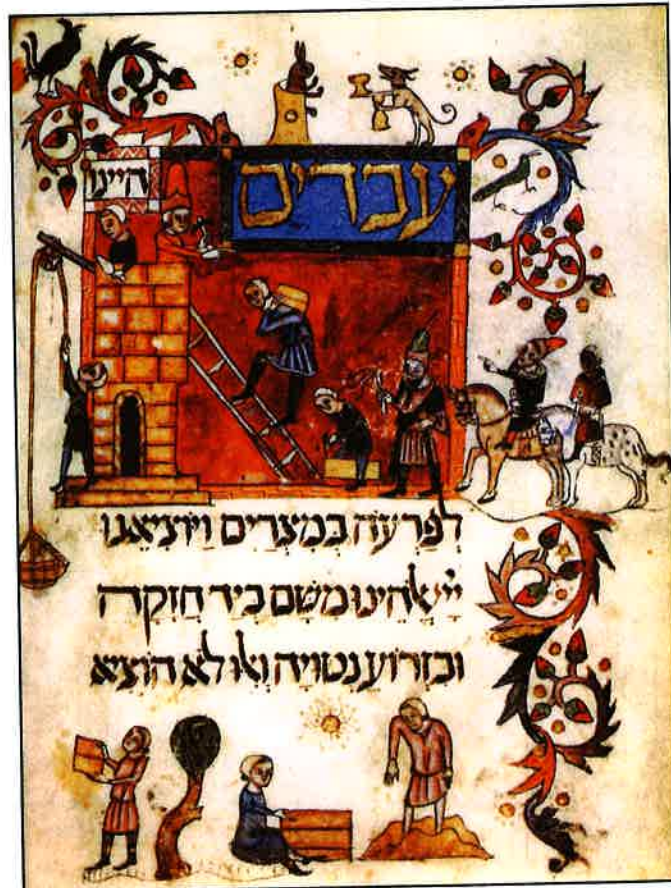 עבדים
היינו
לְפַרְעֹה בְּמִצְרַיִם וַיּוֹצִיאֵנוּ
יְיָ אֱלֹהֵינוּ מִשָּׁם בְּיַד חֲזָקָה
וּבִזְרוֹעַ נְטוּיָה וְאִלּוּ לֹא הוֹצִיא